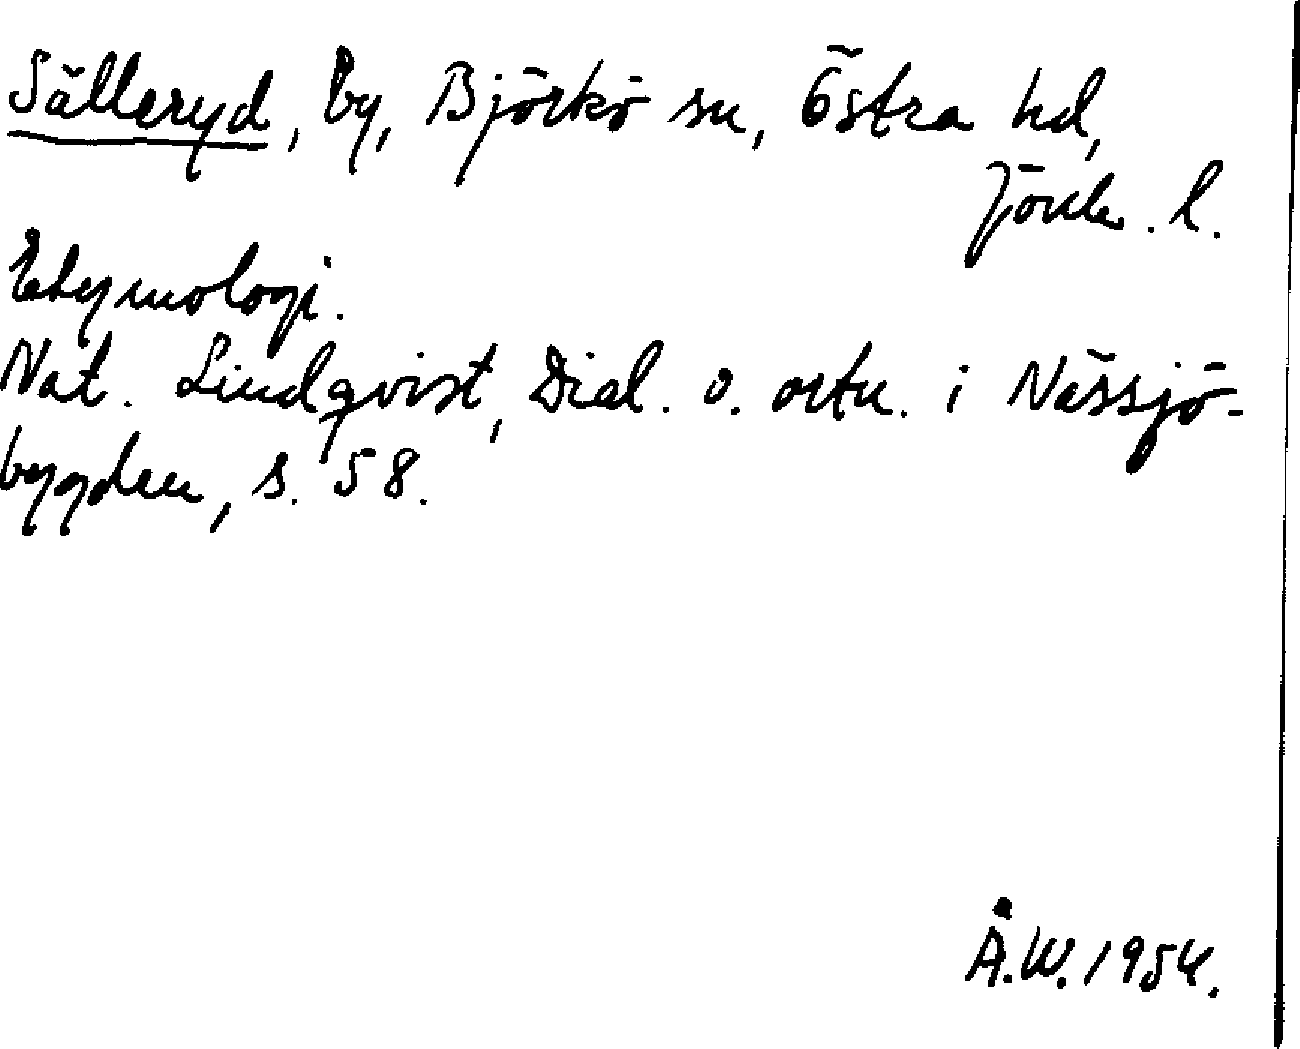 Sälleryd, by, Björkö sn, Östra hd,
Jönk. l.
Etymologi.
Nat. Lindqvist, Dial. o. ortn. i Nässjö-
bygden, s. 58.
Å.W. 1954.